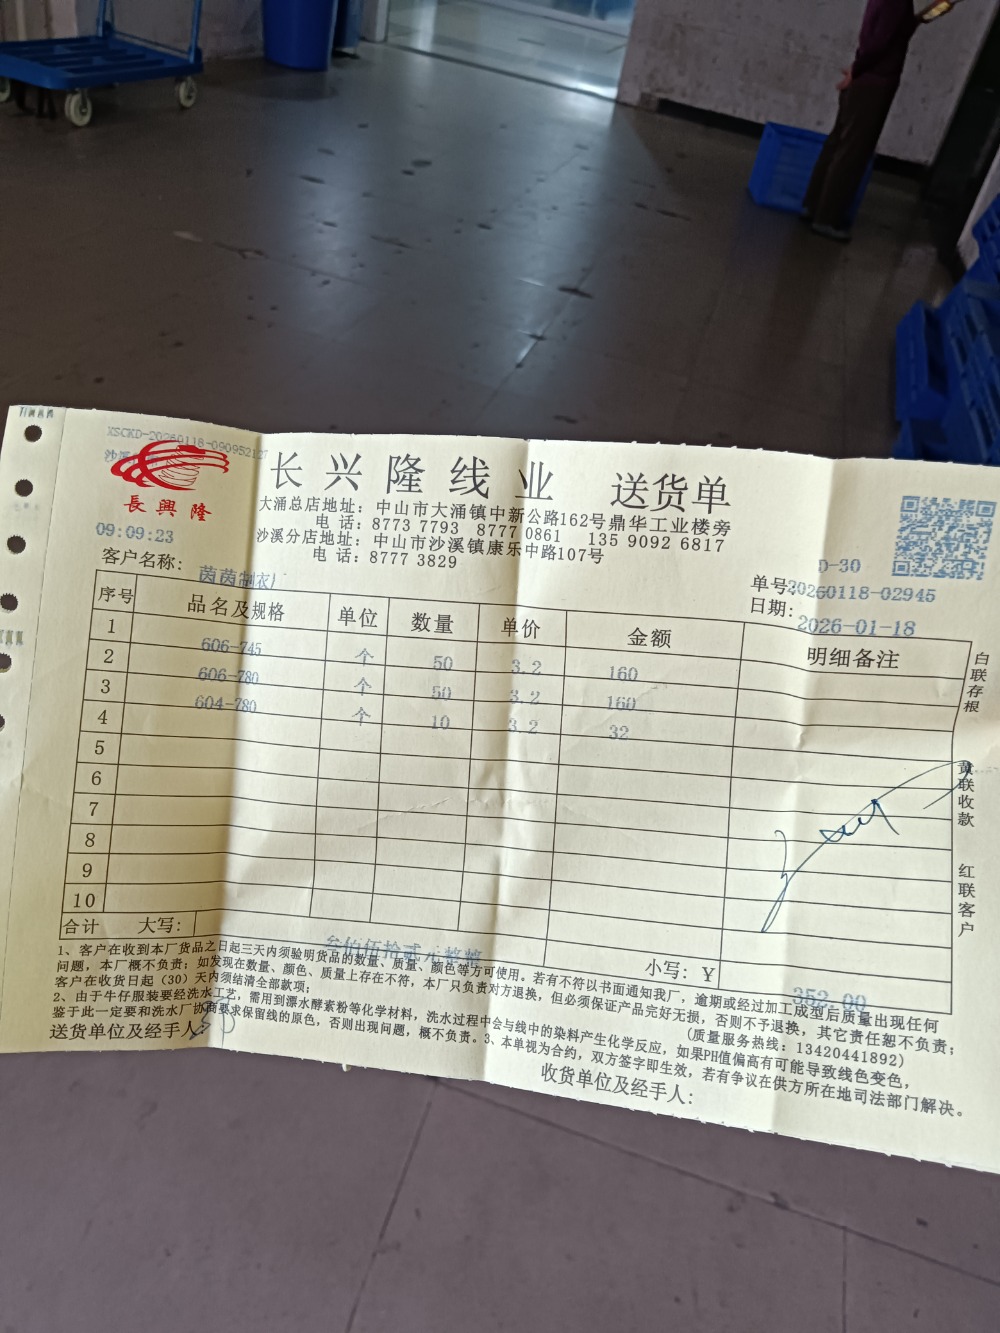 XSCKD-20260118-090952127
長興隆
09:09:23
长兴隆线业 送货单
大涌总店地址：中山市大涌镇中新公路162号鼎华工业楼旁
电话：8773 7793 8777 0861 135 9092 6817
沙溪分店地址：中山市沙溪镇康乐中路107号
电话：8777 3829
D-30
客户名称：茵茵制衣厂
单号：20260118-02945
日期：2026-01-18
序号 品名及规格 单位 数量 单价 金额 明细备注
1 606-745 个 50 3.2 160
2 606-780 个 50 3.2 160
3 604-780 个 10 3.2 32
4
5
6
7
8
9
10
合计 大写：叁佰伍拾贰元整 小写：￥352.00
白联存根 黄联收款 红联客户
1、客户在收到本厂货品之日起三天内须验明货品的数量、质量、颜色等方可使用。若有不符以书面通知我厂，逾期或经过加工成型后质量出现任何
问题，本厂概不负责；如发现在数量、颜色、质量上存在不符，本厂只负责对方退换，但必须保证产品完好无损，否则不予退换，其它责任恕不负责；
客户在收货日起（30）天内须结清全部款项； （质量服务热线：13420441892）
2、由于牛仔服装要经洗水工艺，需用到漂水酵素粉等化学材料，洗水过程中会与线中的染料产生化学反应，如果PH值偏高有可能导致线色变色，
鉴于此一定要和洗水厂协商要求保留线的原色，否则出现问题，概不负责。3、本单视为合约，双方签字即生效，若有争议在供方所在地司法部门解决。
送货单位及经手人： 收货单位及经手人：